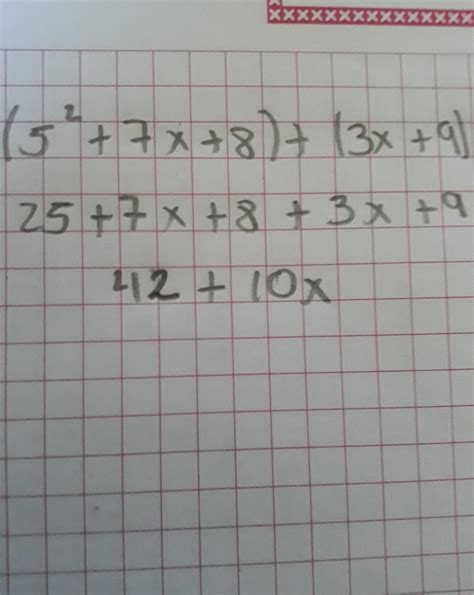 (5² + 7x + 8) + (3x + 9)
25 + 7x + 8 + 3x + 9
42 + 10x